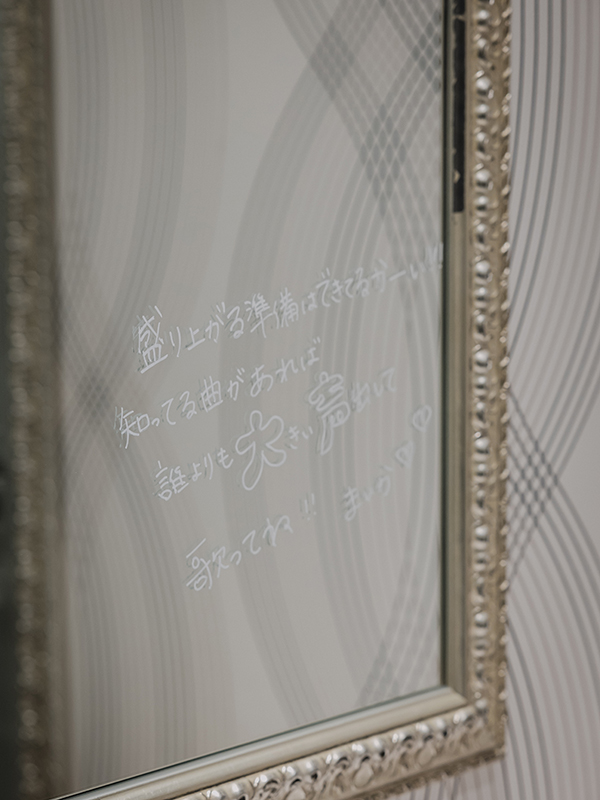 盛り上がる準備はできてるかーい!!
知ってる曲があれば
誰よりも大きい声出して
歌ってね!! まいか♡♡